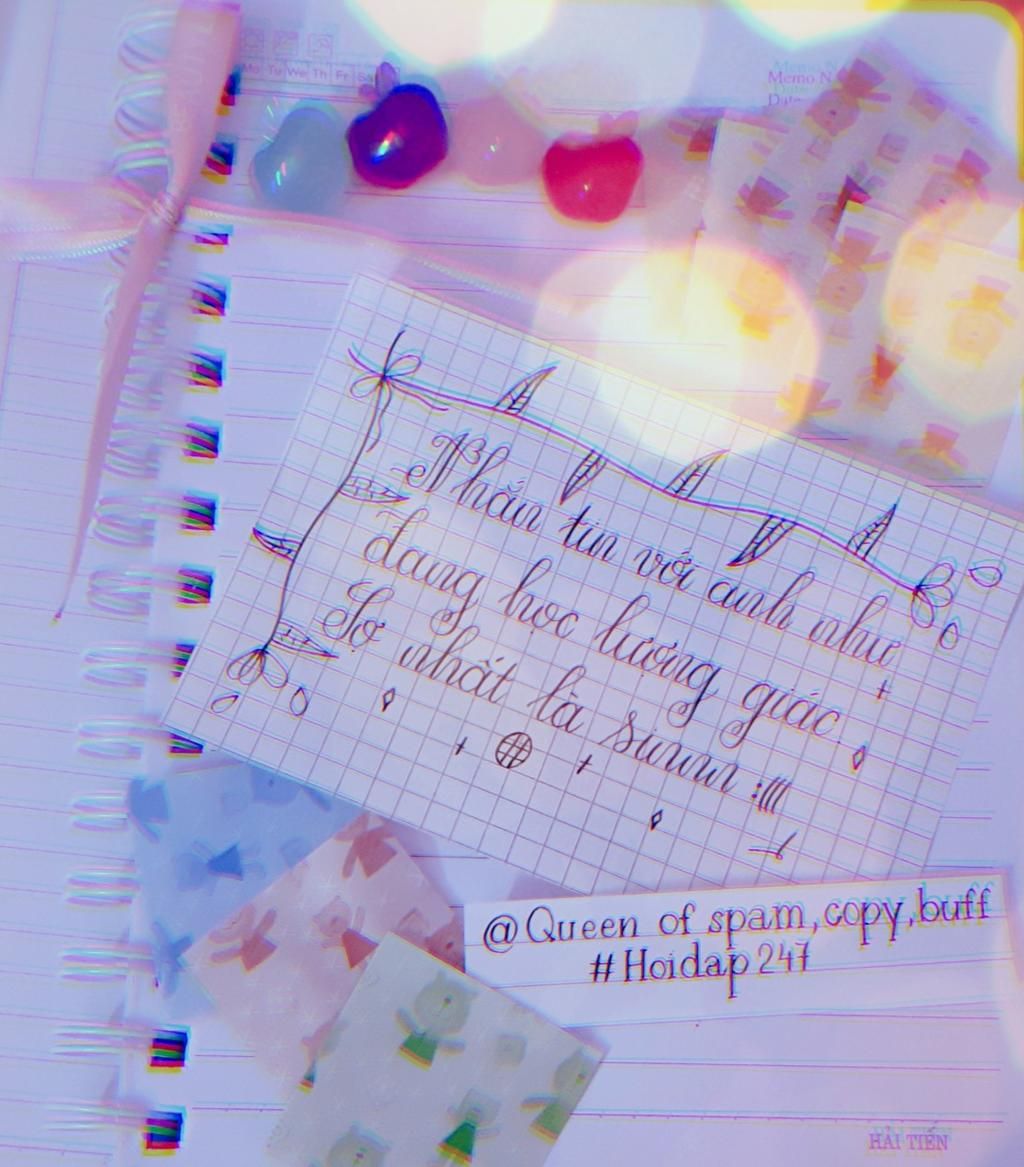 Mo Tu We Th Fr Sa
Memo N
Date
Nhắn tin với anh như
đang học lượng giác.
Sợ nhất là sinnn :((((
@Queen of spam,copy,buff
#Hoidap247
HẢI TIẾN